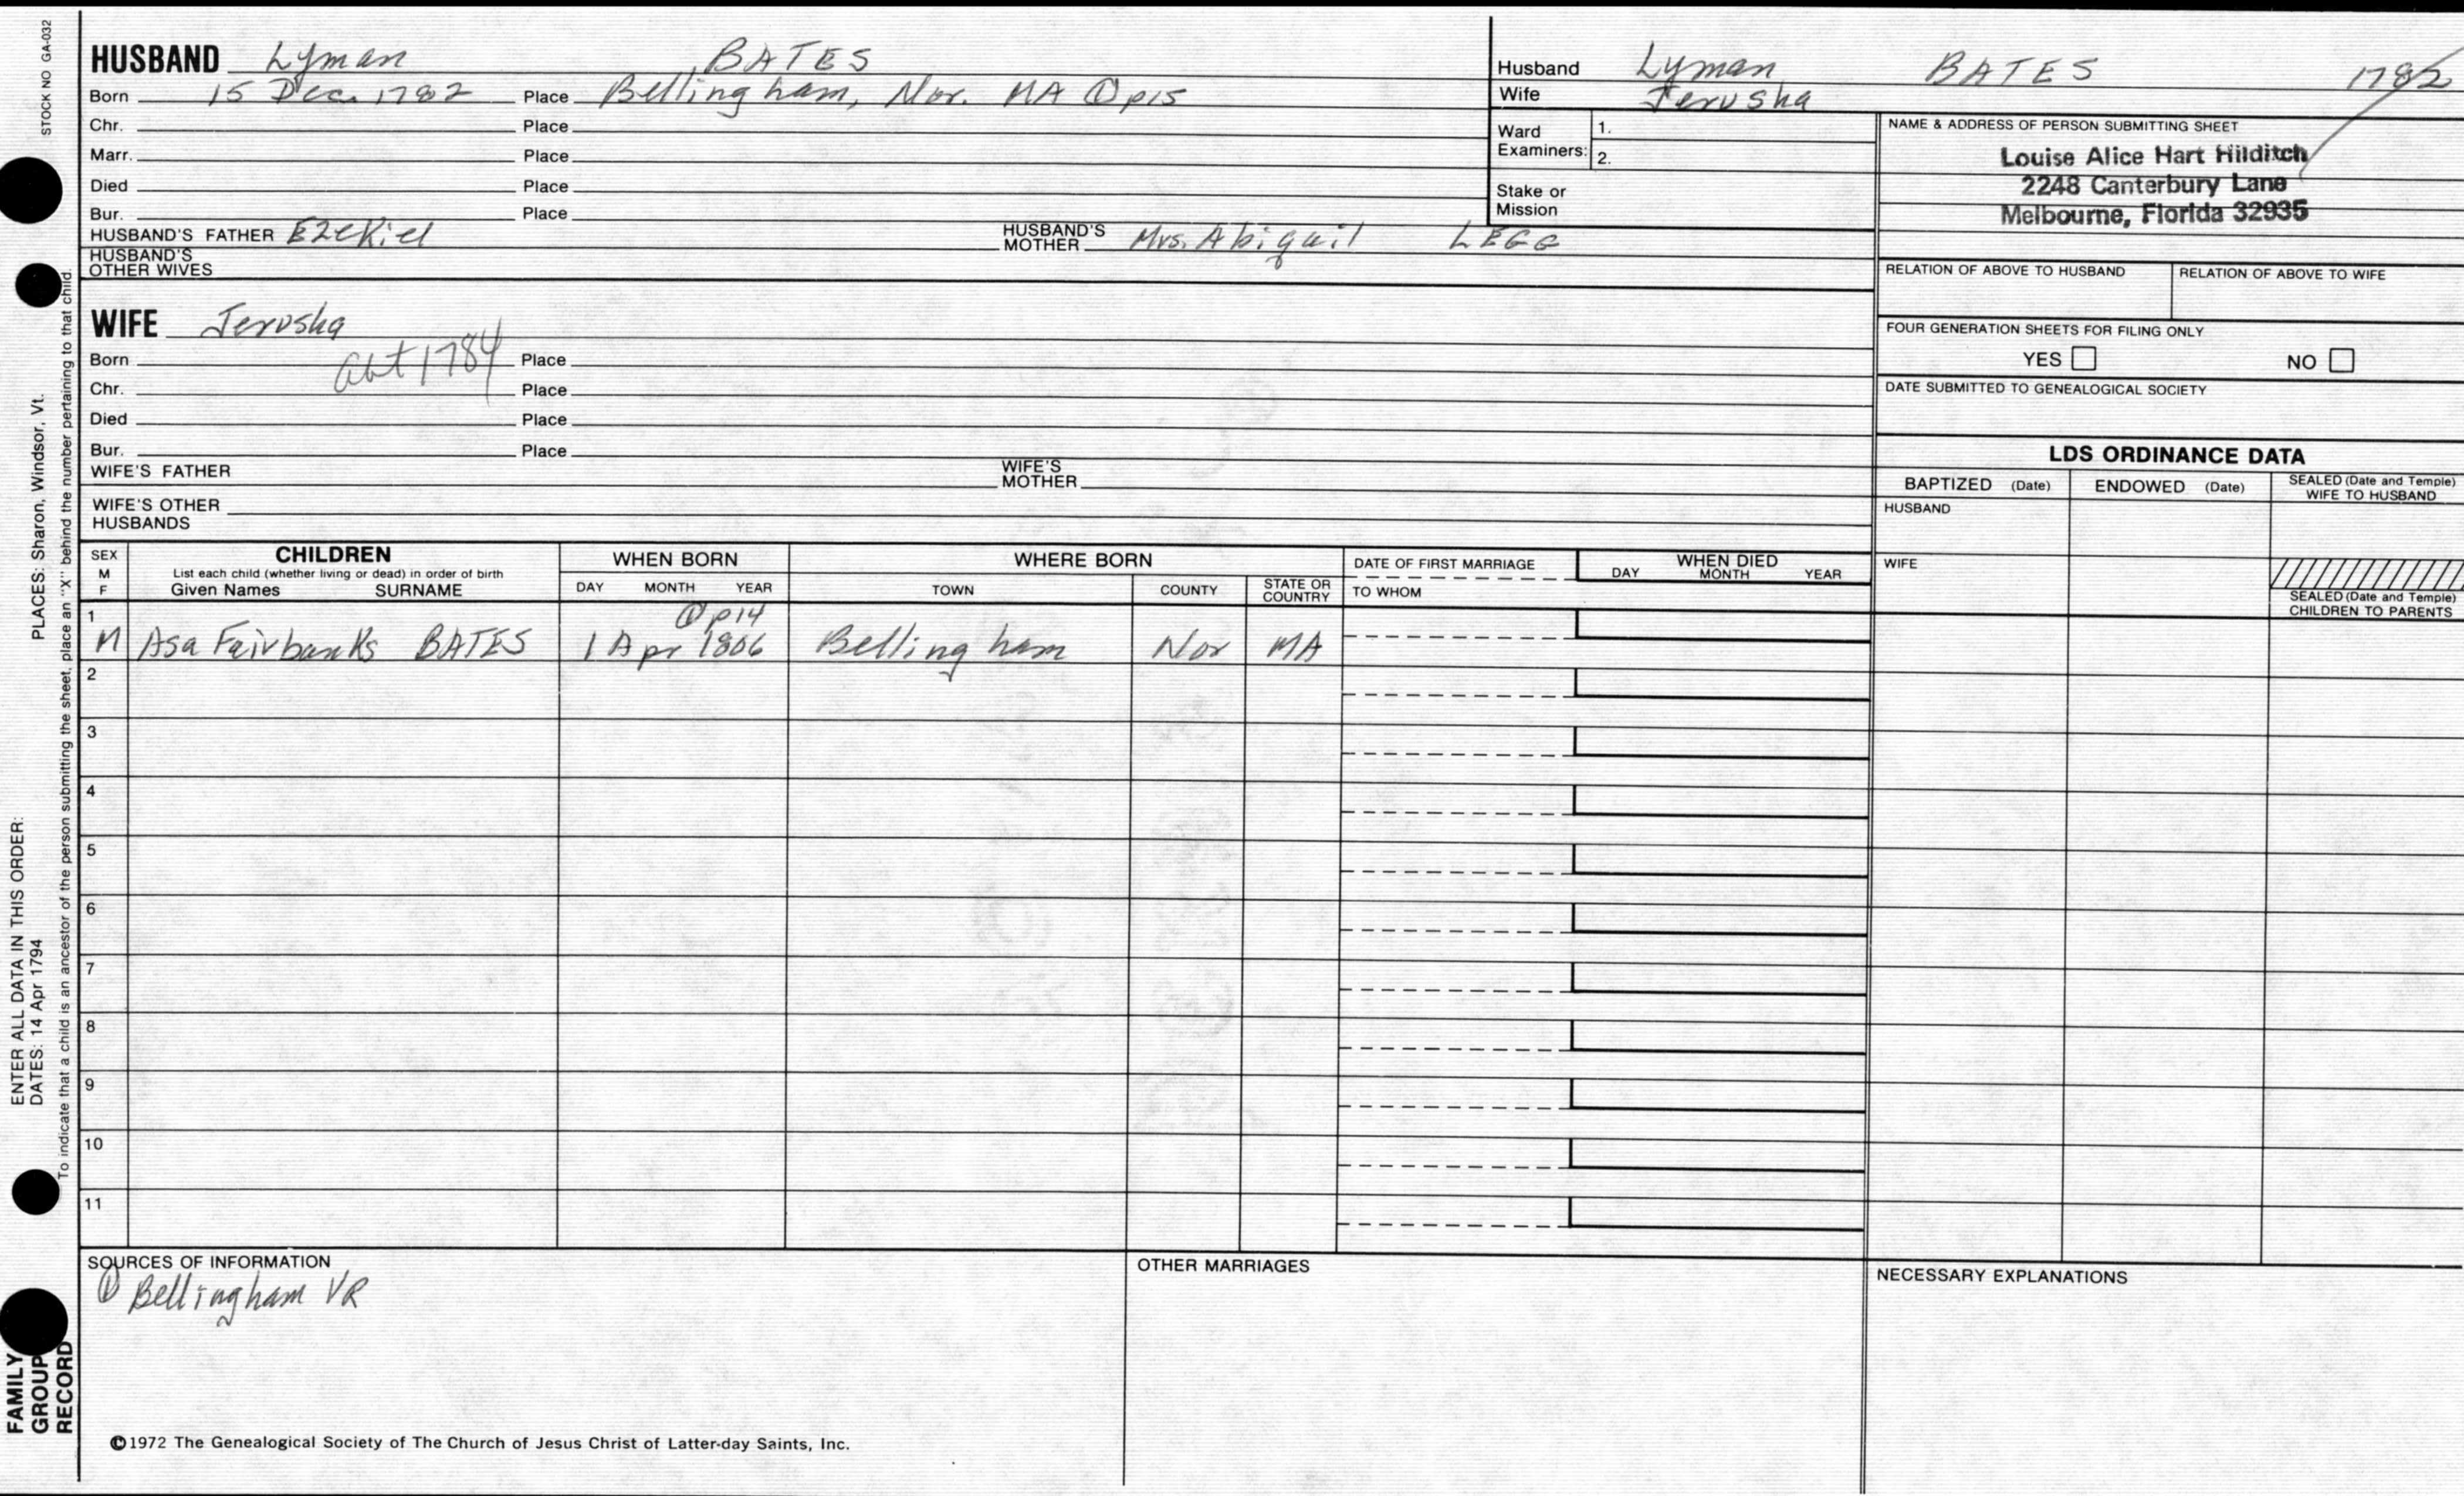 STOCK NO GA-032
HUSBAND Lyman BATES
Born 15 Dec. 1782 Place Bellingham, Nor. MA ① p15
Chr. Place
Marr. Place
Died Place
Bur. Place
HUSBAND'S FATHER Ezekiel HUSBAND'S MOTHER Mrs. Abigail LEGG
HUSBAND'S OTHER WIVES
WIFE Jerusha
Born abt 1784 Place
Chr. Place
Died Place
Bur. Place
WIFE'S FATHER WIFE'S MOTHER
WIFE'S OTHER HUSBANDS
Husband Lyman BATES 1782
Wife Jerusha
Ward Examiners: 1.
2.
Stake or Mission
NAME & ADDRESS OF PERSON SUBMITTING SHEET
Louise Alice Hart Hilditch
2248 Canterbury Lane
Melbourne, Florida 32935
RELATION OF ABOVE TO HUSBAND RELATION OF ABOVE TO WIFE
FOUR GENERATION SHEETS FOR FILING ONLY
YES NO
DATE SUBMITTED TO GENEALOGICAL SOCIETY
LDS ORDINANCE DATA
BAPTIZED (Date) ENDOWED (Date) SEALED (Date and Temple) WIFE TO HUSBAND
HUSBAND
WIFE
SEALED (Date and Temple) CHILDREN TO PARENTS
SEX M F CHILDREN List each child (whether living or dead) in order of birth Given Names SURNAME
WHEN BORN DAY MONTH YEAR
WHERE BORN TOWN COUNTY STATE OR COUNTRY
DATE OF FIRST MARRIAGE TO WHOM
WHEN DIED DAY MONTH YEAR
1 ① p14
M Asa Fairbanks BATES 1 Apr 1806 Bellingham Nor MA
2
3
4
5
6
7
8
9
10
11
SOURCES OF INFORMATION
① Bellingham VR
OTHER MARRIAGES
NECESSARY EXPLANATIONS
©1972 The Genealogical Society of The Church of Jesus Christ of Latter-day Saints, Inc.
ENTER ALL DATA IN THIS ORDER:
DATES: 14 Apr 1794 PLACES: Sharon, Windsor, Vt.
To indicate that a child is an ancestor of the person submitting the sheet, place an "X" behind the number pertaining to that child.
FAMILY GROUP RECORD